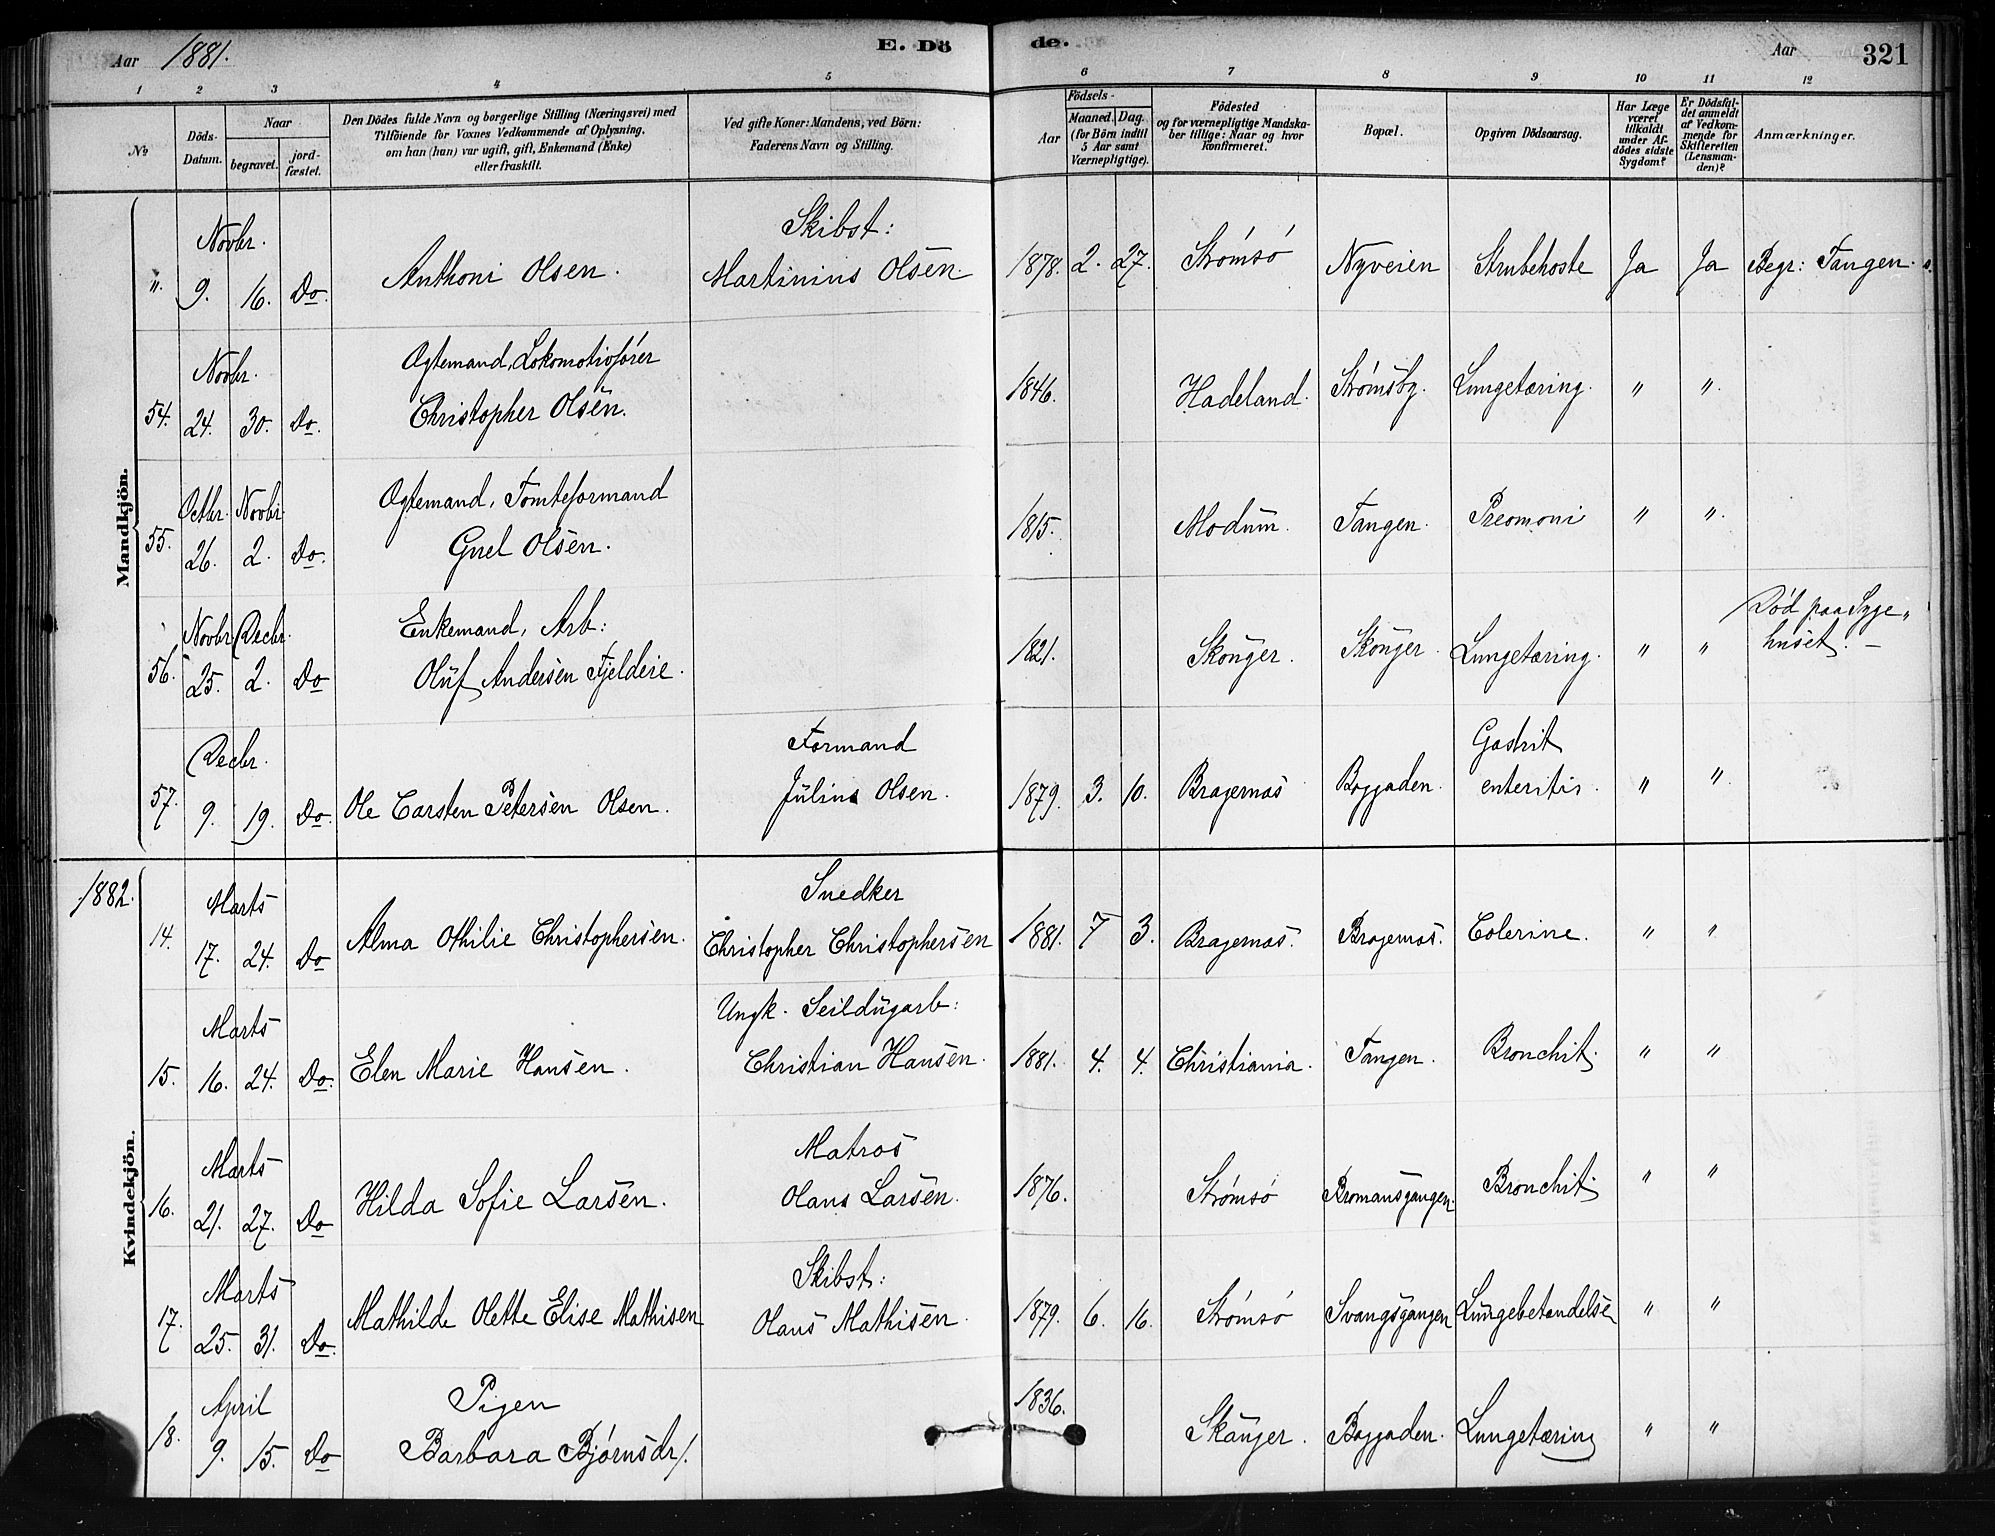 Aar 1881. E. Dö de. Aar 321
1 2 3 4 5 6 7 8 9 10 11 12
№
Döds-Datum.
Naar
begravet.
jord-fæstet.
Den Dödes fulde Navn og borgerlige Stilling (Næringsvei) med
Tilföiende for Voxnes Vedkommende af Oplysning.
om han (hun) var ugift, gift, Enkemand (Enke)
eller fraskilt.
Ved gifte Koner: Mandens, ved Börn:
Faderens Navn og Stilling.
Födsels-
Aar
Maaned. Dag.
(for Börn indtil
5 Aar samt
Værnepligtige).
Födested
og for værnepligtige Mandska-
ber tillige: Naar og hvor
Konfirmeret.
Bopæl.
Opgiven Dödsaarsag.
Har Læge
været
tilkaldt
under Af-
dödes sidste
Sygdom?
Er Dödsfal-
det anmeldt
af Vedkom-
mende for
Skifteretten
(Lensman-
den)?
Anmærkninger.
Mandkjön.
Novbr. Skibst:
" 9. 16. Do. Anthoni Olsen. Martinius Olsen. 1878. 2. 27. Strömsö Nyveien Strubehoste Ja Ja Begr: Tangen.
Novbr. Ogtemand, Lokomotivfører
54. 24. 30. Do. Christopher Olsen. 1846. Hadeland. Strömsby. Lungetæring. " "
Octbr. Novbr. Ogtemand, Tomteformand
55. 26. 2. Do. Guel Olsen. 1815. Modum. Tangen. Preomoni " "
Novbr. Decbr. Enkemand, Arb: Död paa Syge„
56. 25. 2. Do Oluf Andersen Fjeldeie. 1821. Skonger. Skonger Lungetæring. " " huset. –
Decbr. Formand Gastrit
57. 9. 19. Do. Ole Carsten Petersen Olsen. Julius Olsen. 1879. 3. 10. Bragernæs Baggaden. enteritis. " "
1882.
Kvindekjön.
Marts Snedker
14. 17. 24. Do Alma Othilie Christophersen. Christopher Christophersen 1881. 7 3. Bragernæs. Bragernæs. Colerine. " "
Marts Ungk. Seildugarb:
15. 16. 24. Do. Elen Marie Hansen. Christian Hansen. 1881. 4. 4. Christiania. Tangen. Bronchit. " "
Marts Matros
16. 21. 27. Do Hilda Sofie Larsen. Olaus Larsen. 1876. Strömsö Bromansgangen. Bronchit. " "
Marts Skibst:
17. 25. 31. Do. Mathilde Olette Elise Mathisen Olaus Mathisen. 1879. 6. 16. Strömsö Svangsgangen Lungebetændelse " "
April Pigen
18. 9. 15. Do Barbara Bjørnsdr/. 1836. Skanger. Baggaden. Lungetæring " "